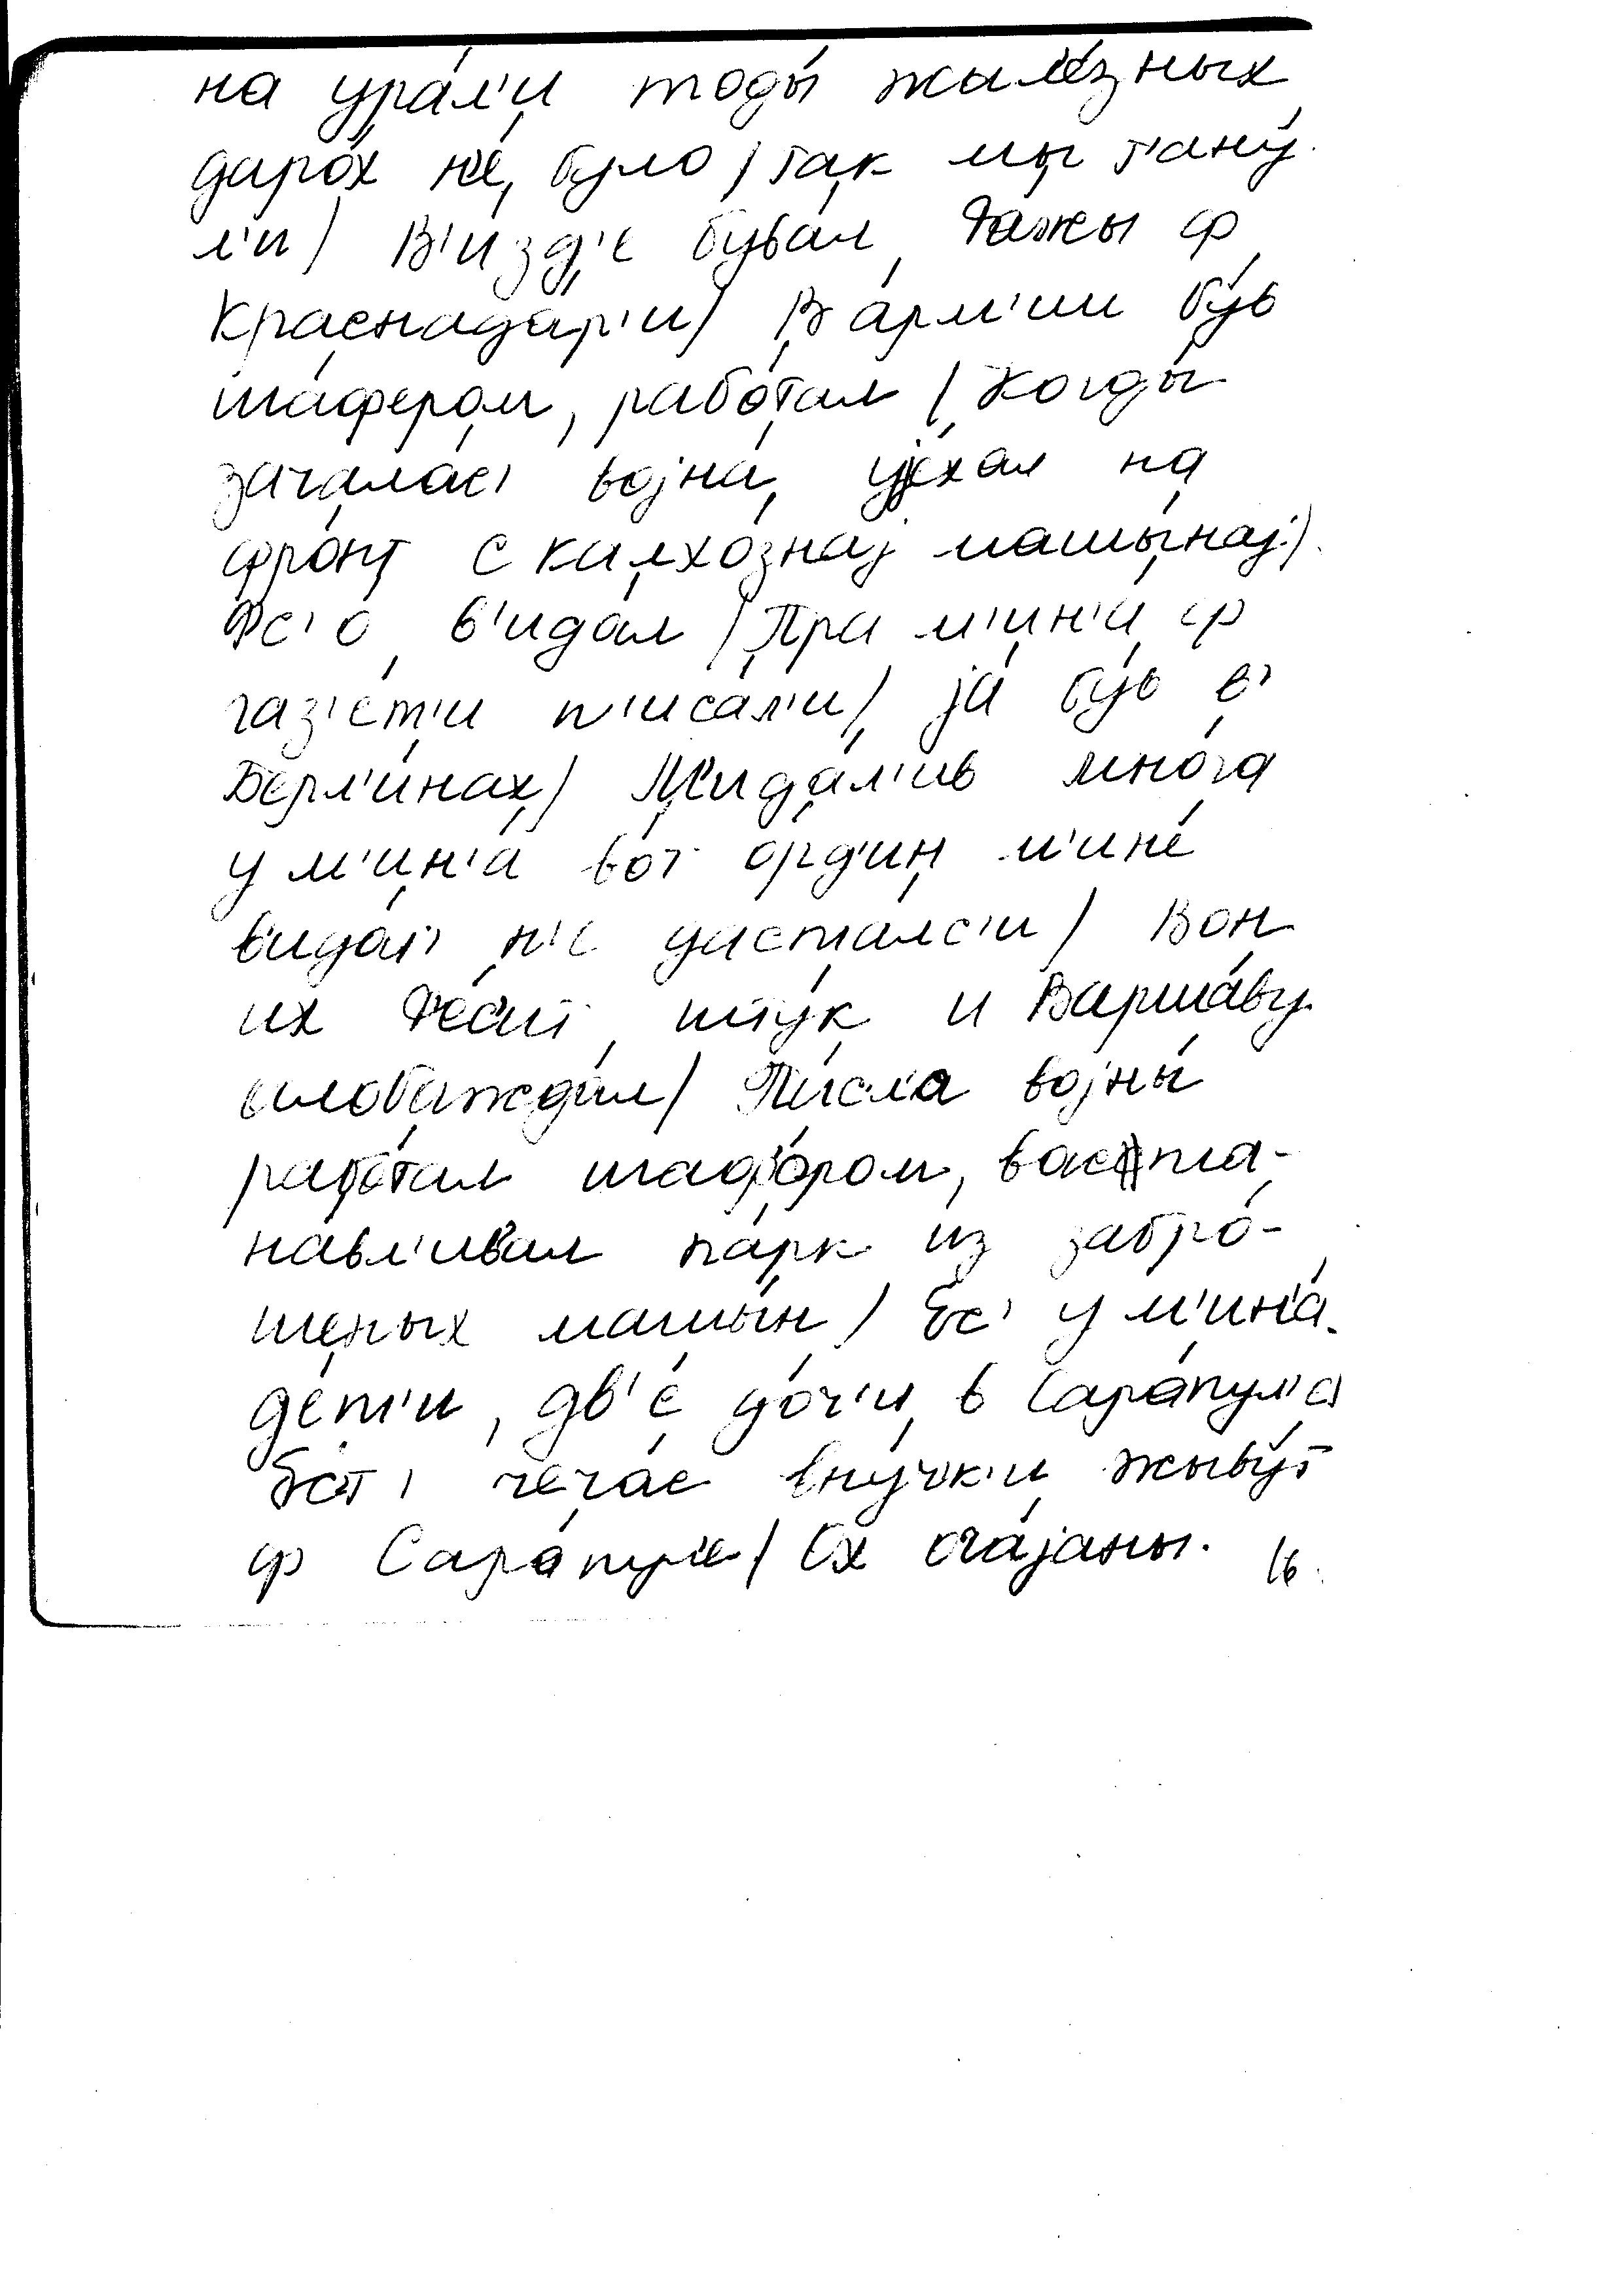 на ура́л'и тоды́ жыл'е́зных
даро́х н'е́ було / так мы т'ану́-
л'и / В'изд'е́ бува́л да́жы ф
Краснада́р'и / В а́рм'ии бу́в
ша́фером, рабо́тал / Когды́
зачала́с' војна́ ује́хал на
фро́нт с калхо́знај машы́нај /
Фс'о́ в'ида́л / Пра м'ин'а́ ф
газ'е́т'и п'иса́л'и / ја́ бу́в в'
Берл'и́нах / М'ида́л'ив мно́га
у м'ин'а́ во́т о́рд'ин м'ине́
вида́т' н'е даста́лс'и / Вон
их де́сит' шту́к и Варша́ву
слобажда́л / По́сл'а војны́
рабо́тал шафо́ром, васта-
на́вл'ивал па́рк из забро́-
шеных машы́н / Ес' у м'ин'а́
де́т'и, дв'е́ до́ч'и в Сара́пул'а
Ест' чечас вну́чк'и жыву́т
ф Сара́пул'е / Ох ача́јаны.
16.